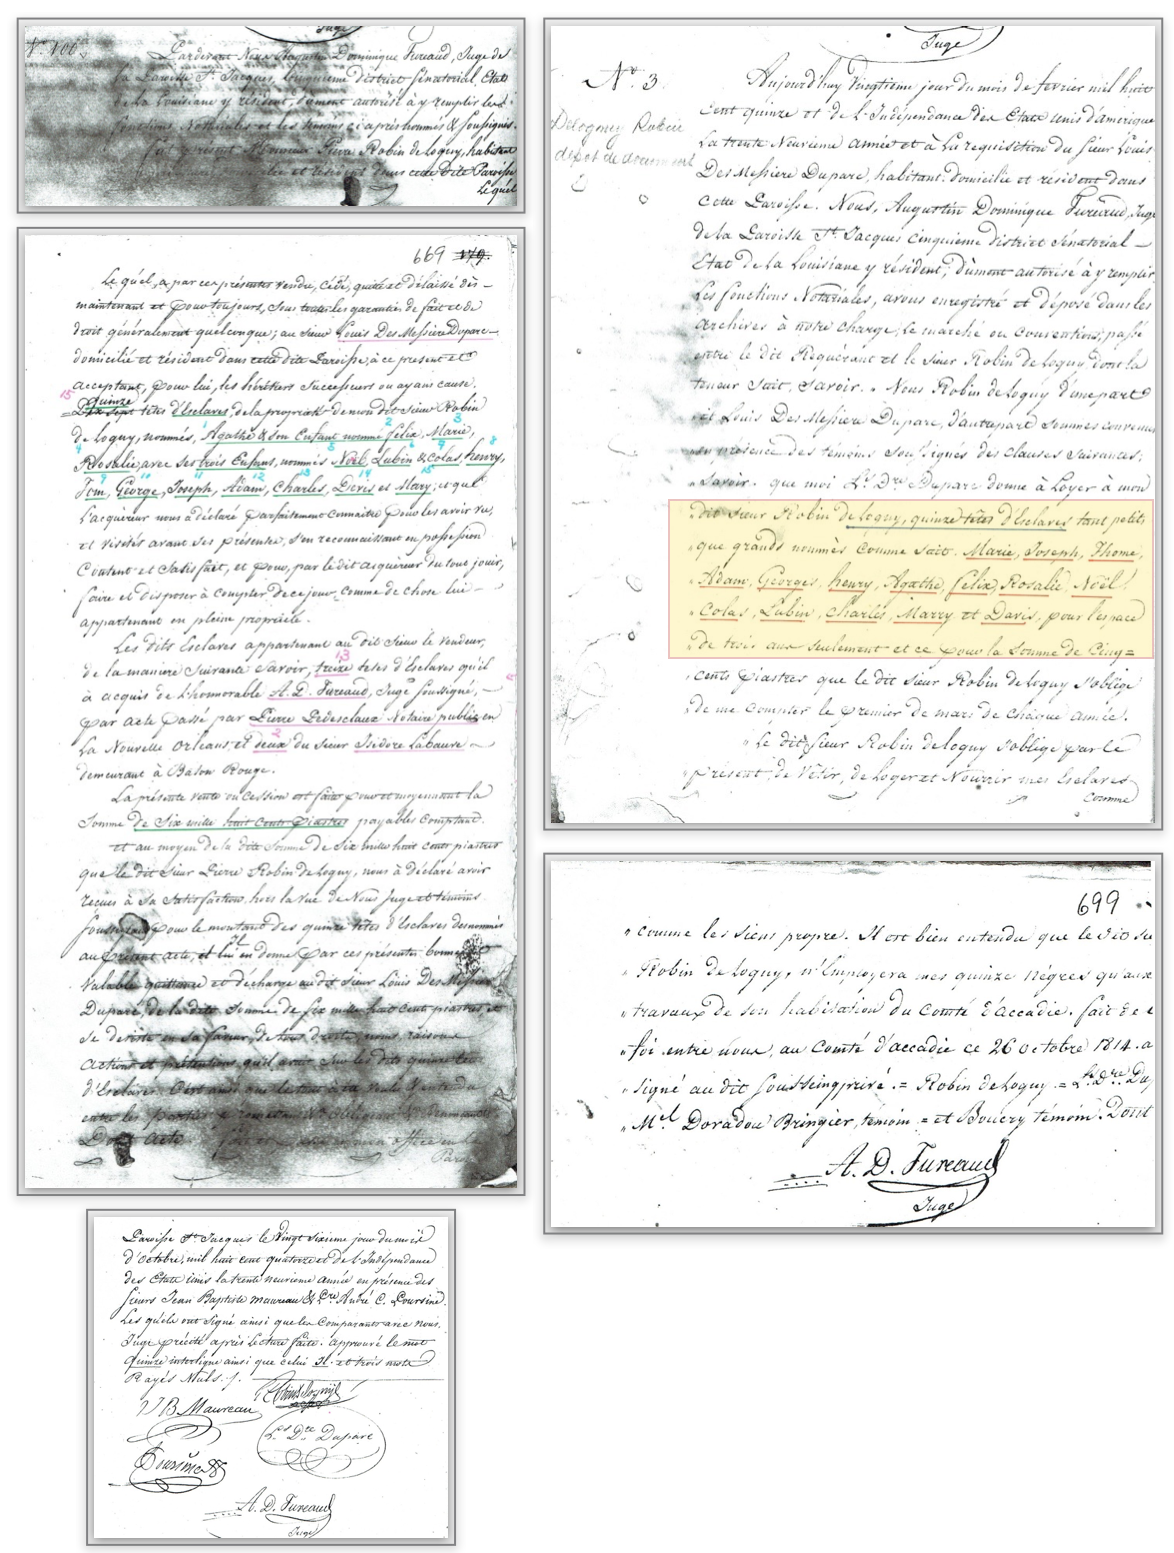 N° 100.
Juge
Pardevant Nous Augustin Dominique Tureaud, Juge de
la Paroisse St. Jacques, Cinquieme district Sénatorial, Etat
de la Louisiane y résident, dûment autorisé à y remplir les
fonctions Notariales et les témoins ci après nommés & soussignés.
fut présent Monsieur Pierre Robin de Loguy, habitant
domicilié et résident dans cette dite Paroisse
Lequel
669 179.
Lequel, a par ces présentes vendu, cédé, quitté et délaissé dès
maintenant et pour toujours, sous toutes les garanties de fait et de
droit généralement quelconque; au sieur Louis Des Messiere Dupare
domicilié et résident dans cette dite Paroisse, à ce present et
acceptant, pour lui, ses héritiers Successeurs ou ayans cause.
15 quinze
Dix sept têtes d'Esclaves, de la propriété de mon dit sieur Robin
1 2 3
de loguy, nommés, Agathe & son Enfant nommé félix, Marie,
4 5 6 7 8
Rosalie, avec ses trois Enfans, nommés Noël Lubin & Colas, henry,
9 10 11 12 13 14 15
Tom, George, Joseph, Adam, Charles, Davis et Mary; et que
l'acquéreur nous a déclaré parfaitement connaitre pour les avoir vu,
et visités avant ses présentes, s'en reconnaissant en possession
Content et Satisfait, et pour, par le dit acquéreur du tout jouir,
faire et disposer à compter de ce jour, comme de chose lui
appartenant en pleine propriété.
Les dits Esclaves appartenant au dit Sieur le vendeur,
13
de la manière Suivante Savoir, treize têtes d'Esclaves qu'il
à acquis de l'honnorable A. D. Tureaud, Juge Soussigné,
par acte passé par Pierre Pedesclaux Notaire public en
2
La Nouvelle Orléans et deux du sieur Isidore Labauve
demeurant à Baton Rouge.
La présente vente ou cession est faite pour et moyennant la
Somme de Six mille huit cents piastres payables Comptant.
et au moyen de la dite Somme de Six mille huit cents piastres
que le dit Sieur Pierre Robin de loguy, nous à déclaré avoir
reçues à sa Satisfaction, hors la vue de Nous Juge et témoins
Soussignés pour le montant des quinze têtes d'Esclaves desnommés
au présent acte, et lui en donne par ces présentes, bonne &
Valable quittance et décharge au dit Sieur Louis Des Messiere
Dupare, de la dite Somme, de six mille huit cents piastres, et
se desiste en sa faveur, de tous droits, noms, raisons
actions et prétentions qu'il avait sur les dits quinze têtes
d'Esclaves. C'est ainsi que le tout a été voulu & entendu
entre les parties,
Dont Acte fait et passé en mon office en la
Paroisse
Paroisse St. Jacques le Vingt sixieme jour du mois
d'octobre, mil huit cent quatorze et de l'Indépendance
des Etats unis la trente neuvieme année en présence des
sieurs Jean Baptiste maureau & Pre. André C. Poursine.
Lesquels ont signé ainsi que les Comparants avec nous.
Juge précité après lecture faite. approuvé le mot
quinze interligne ainsi que celui Il. et trois mots
Rayés Nuls. /.
J B. Maureau
Robin deloguy
Ls. Dre. Dupare
Poursine
A. D. Tureaud
Juge
Juge
N° 3.
Delogney Robin
dépot de document
Aujourd'huy Vingtieme jour du mois de fevrier mil huit
cent quinze et de l'Indépendance des Etats unis d'amérique
La trente Neuvieme année et à la requisition du Sieur Louis
Des Messiere Dupare, habitant. domicilié et résident dans
cette Paroisse. Nous, Augustin Dominique Tureaud, Juge
de la Paroisse St. Jacques cinquieme district Sénatorial
Etat de la Louisiane y résident; dûment autorisé à y remplir
les fonctions Notariales, avons enregistré et déposé dans les
archives à notre charge, le marché ou convention; passé
entre le dit Réquérant et le sieur Robin de loguy, dont la
teneur suit, savoir. " Nous Robin de loguy d'une part
" et Louis Des Messiere Dupare, d'autre part Sommes convenus
" en présence des témoins Soussignés des clauses Suivantes;
" Savoir. que moi Ls. Dre. Dupare donne à loyer à mon
" dit sieur Robin de loguy, quinze têtes d'Esclaves tant petits
" que grands nommés comme Suit. Marie, Joseph, Thome,
" Adam, Georges, henry, Agathe, felix, Rosalie, Noël,
" Colas, Lubin, Charles, Marry et Davis, pour l'espace
" de trois ans seulement et ce pour la Somme de Cinq=
" cents piastres que le dit sieur Robin de loguy s'oblige
" de me compter le premier de mars de chaque année.
" Le dit sieur Robin de loguy s'oblige par le
" présent, de Vêtir, de loger et Nourrir mes Esclaves
comme
699
" comme les siens propre. Il est bien entendu que le dit Sr
" Robin de loguy, n'Employera mes quinze Négres qu'aux
" travaux de son habitation du Comté d'accadie. fait de
" foi entre nous, au Comté d'accadie ce 26 octobre 1814. a
" signé au dit soussingprivé. = Robin de loguy. = Ls. Dre. Du
" Mel Doradou Bringier, témoin = et Boucry témoin. Dont
A. D. Tureaud
Juge